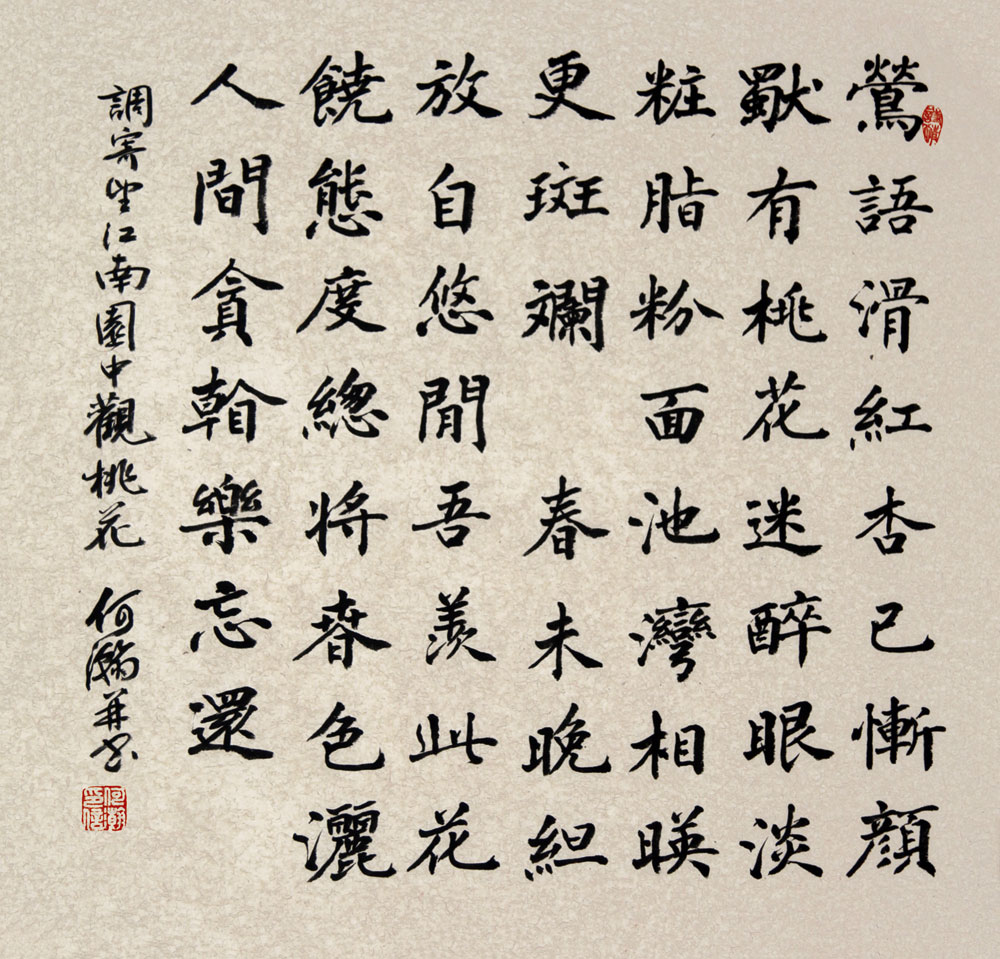 鶯語滑紅杏已慚顏
獨有桃花迷醉眼淡
粧脂粉面池灣相暎
更斑斕 春未晚䋎
放自悠閒吾羨此花
饒態度總將春色灑
人間貪看樂忘還
調寄望江南園中觀桃花 何瀚並書
何瀚印信